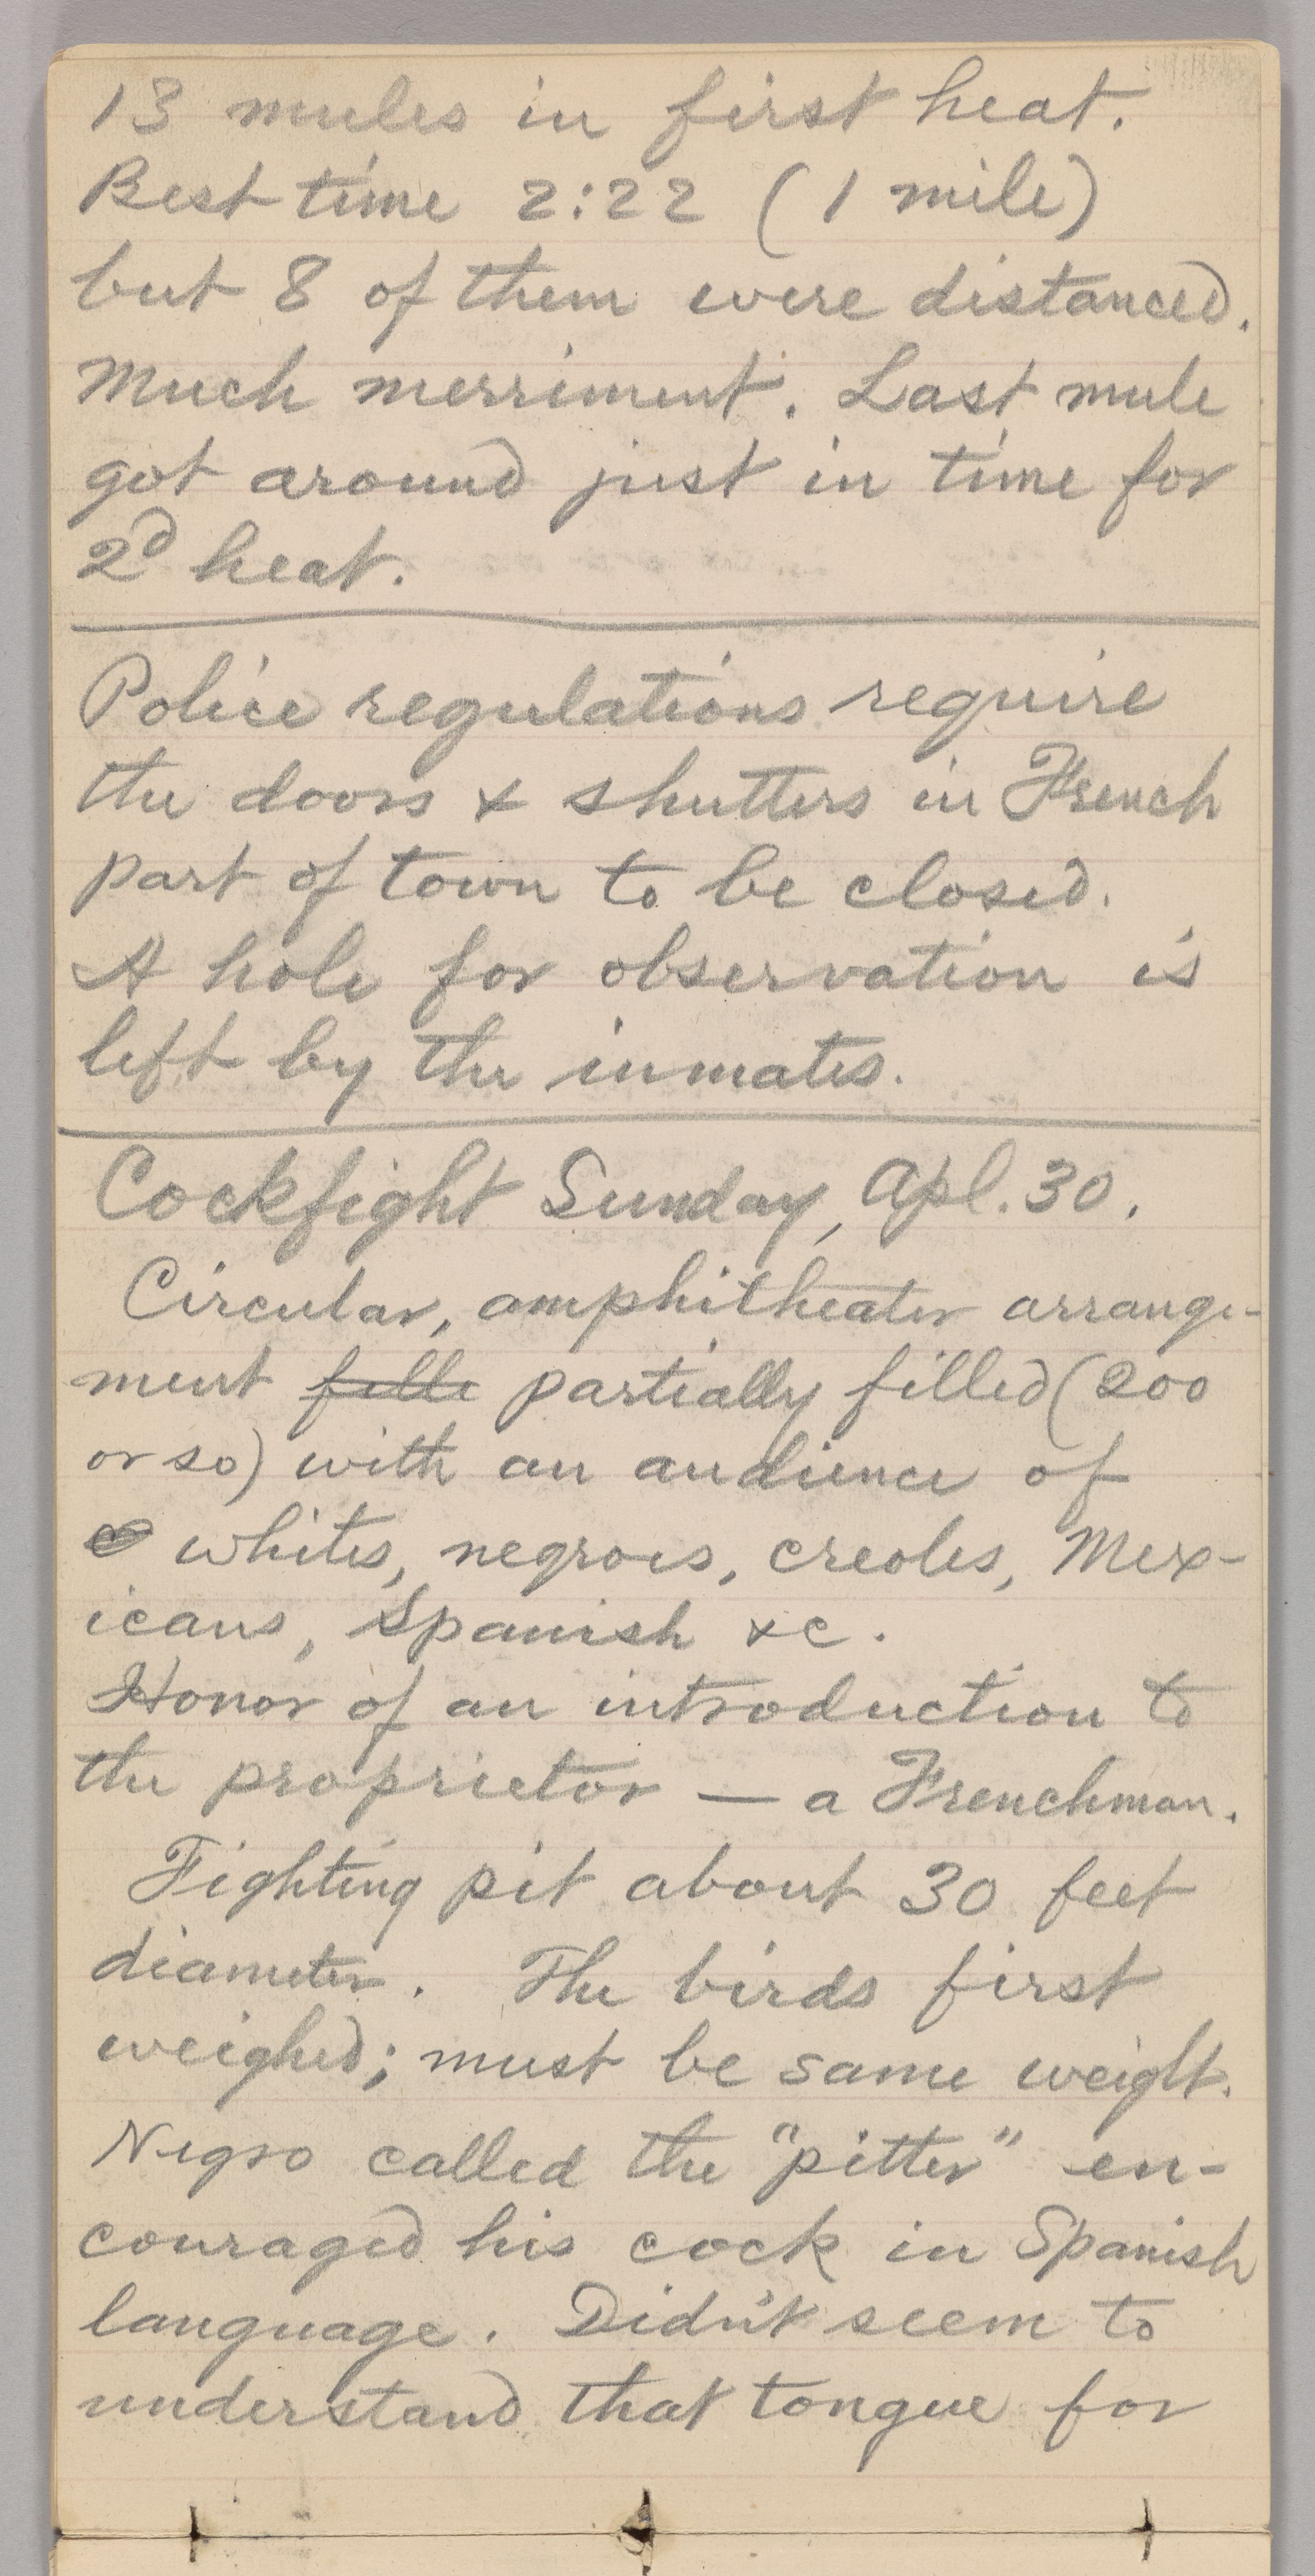 13 mules in first heat.
Best time 2:22 (1 mile)
but 8 of them were distanced.
Much merriment. Last mule
got around just in time for
2d heat.
Police regulations require
the doors & shutters in French
part of town to be closed.
A hole for observation is
left by the inmates.
Cockfight Sunday, Apl. 30.
Circular, amphitheater arrange-
ment fille partially filled (200
or so) with an audience of
whites, negroes, creoles, Mex-
icans, Spanish &c.
Honor of an introduction to
the proprietor — a Frenchman.
Fighting pit about 30 feet
diameter. The birds first
weighed; must be same weight.
Negro called the "pitter" en-
couraged his cock in Spanish
language. Didn't seem to
understand that tongue for